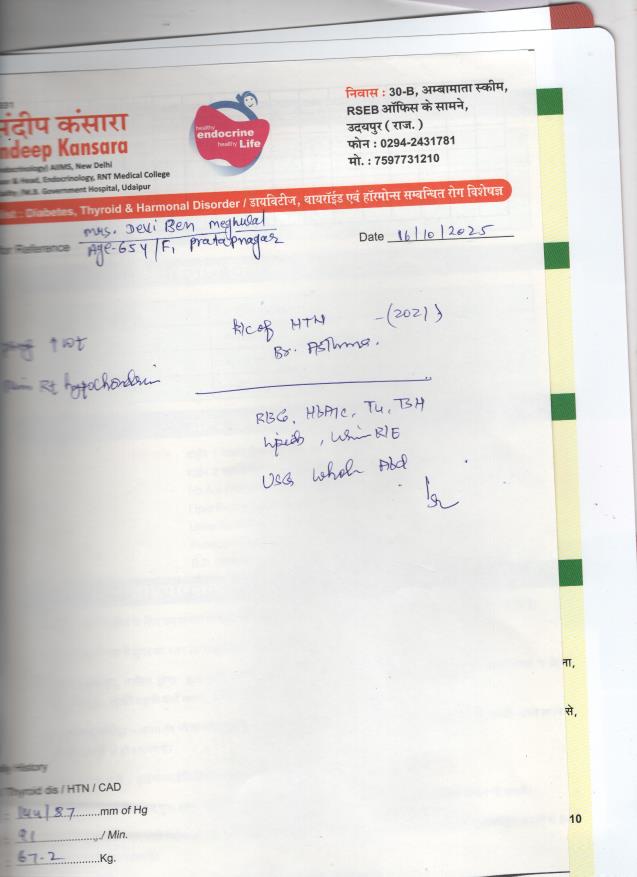 991
संदीप कंसारा
ndeep Kansara
AIIMS, New Delhi
& Head, Endocrinology, RNT Medical College
M.B. Government Hospital, Udaipur
healthy
endocrine
healthy Life
निवास : 30-B, अम्बामाता स्कीम,
RSEB ऑफिस के सामने,
उदयपुर ( राज. )
फोन : 0294-2431781
मो. : 7597731210
ist : Diabetes, Thyroid & Harmonal Disorder / डायबिटीज, थायरॉईड एवं हॉरमोन्स सम्बन्धित रोग विशेषज्ञ
for Reference
Mrs. Devi Ben Meghwal
Age-65y/F, Pratapnagar
Date 16/10/2025
K/c of HTN -(2021)
Br. Asthma.
↑ wt
Rt hypochondrium
RBG, HbA1c, T4, TSH
Lipids, Urine R/E
USG Whole Abd
ना,
से,
ily History
Thyroid dis / HTN / CAD
: 144/87 mm of Hg
: 91 / Min.
: 67.2 Kg.
10